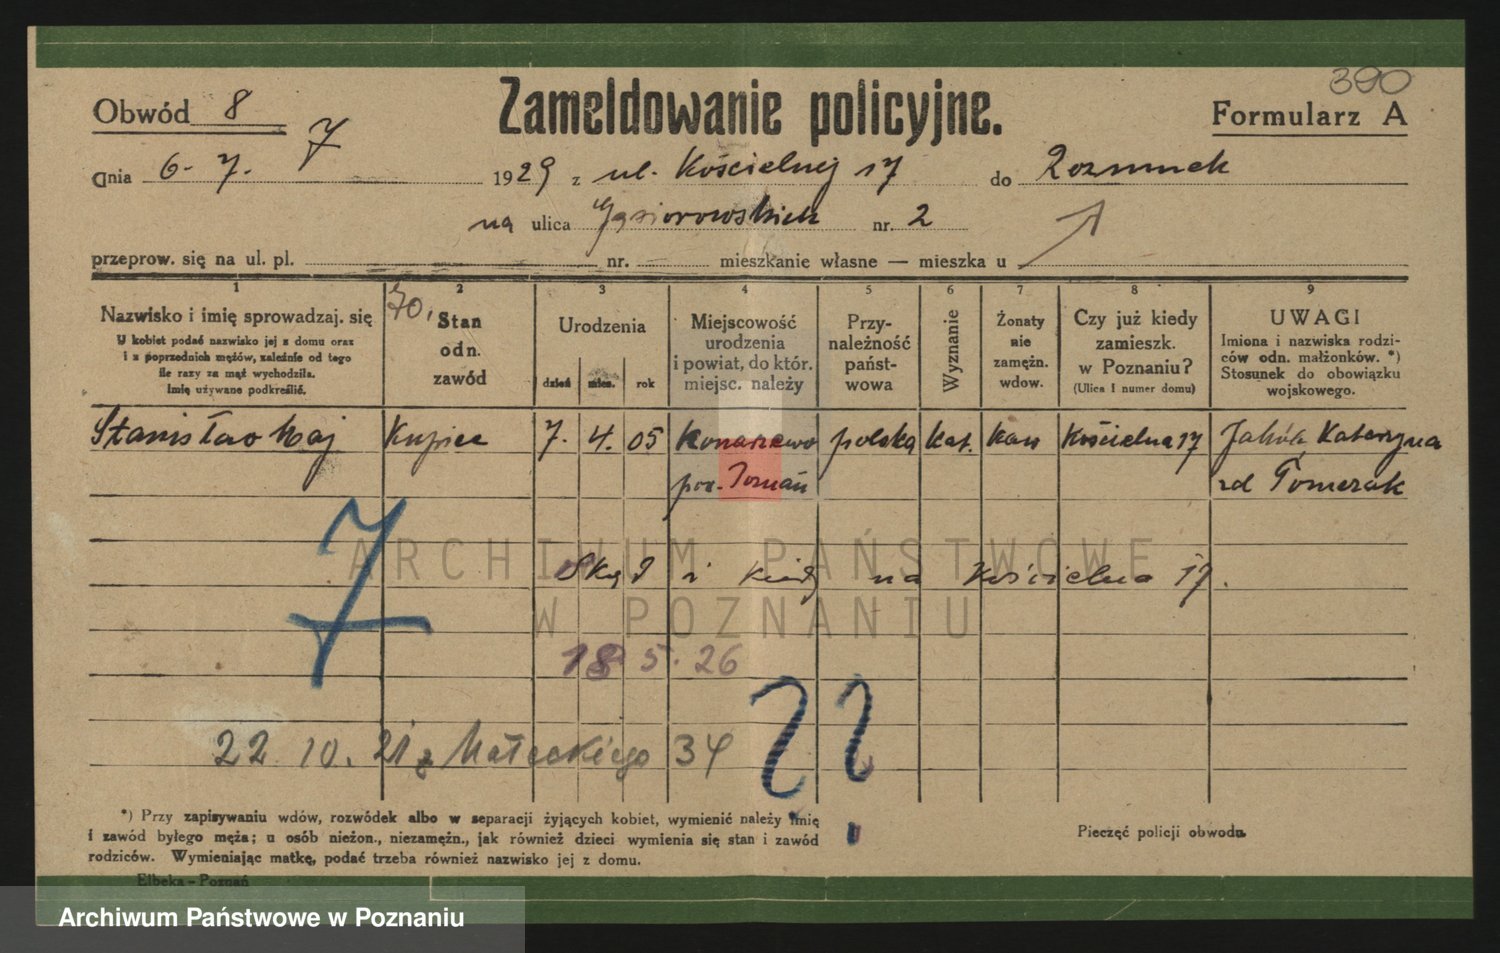 390
Obwód 8
Zameldowanie policyjne.
Formularz A
7
dnia 6. 7. 1929 z ul. Kościelnej 17 do
na ulica Gąsiorowskich nr. 2
przeprow. się na ul. pl. nr. mieszkanie własne — mieszka u
1
Nazwisko i imię sprowadzaj. się
U kobiet podać nazwisko jej z domu oraz
i z poprzednich mężów, zależnie od tego
ile razy za mąż wychodziła.
Imię używane podkreślić.
70,
2
Stan
odn.
zawód
3
Urodzenia
dzień mies. rok
4
Miejscowość
urodzenia
i powiat, do któr.
miejsc. należy
5
Przy-
należność
państ-
wowa
6
Wyznanie
7
Żonaty
nie
zamężn.
wdow.
8
Czy już kiedy
zamieszk.
w Poznaniu?
(Ulica i numer domu)
9
UWAGI
Imiona i nazwiska rodzi-
ców odn. małżonków. *)
Stosunek do obowiązku
wojskowego.
Stanisław Maj Kupiec 7. 4. 05 Konarzewo polska kat. kaw Kościelna 17 Jakób Katarzyna
pow. Poznań zd Pomerak
7
ARCHIWUM PAŃSTWOWE
Skąd i kiedy na Kościelna 17.
W POZNANIU
18 5. 26
22 10. 21 z Małeckiego 34
??
*) Przy zapisywaniu wdów, rozwódek albo w separacji żyjących kobiet, wymienić należy imię
i zawód byłego męża; u osób nieżon., niezamężn., jak również dzieci wymienia się stan i zawód
rodziców. Wymieniając matkę, podać trzeba również nazwisko jej z domu.
Pieczęć policji obwodu.
Elbeka – Poznań
Archiwum Państwowe w Poznaniu